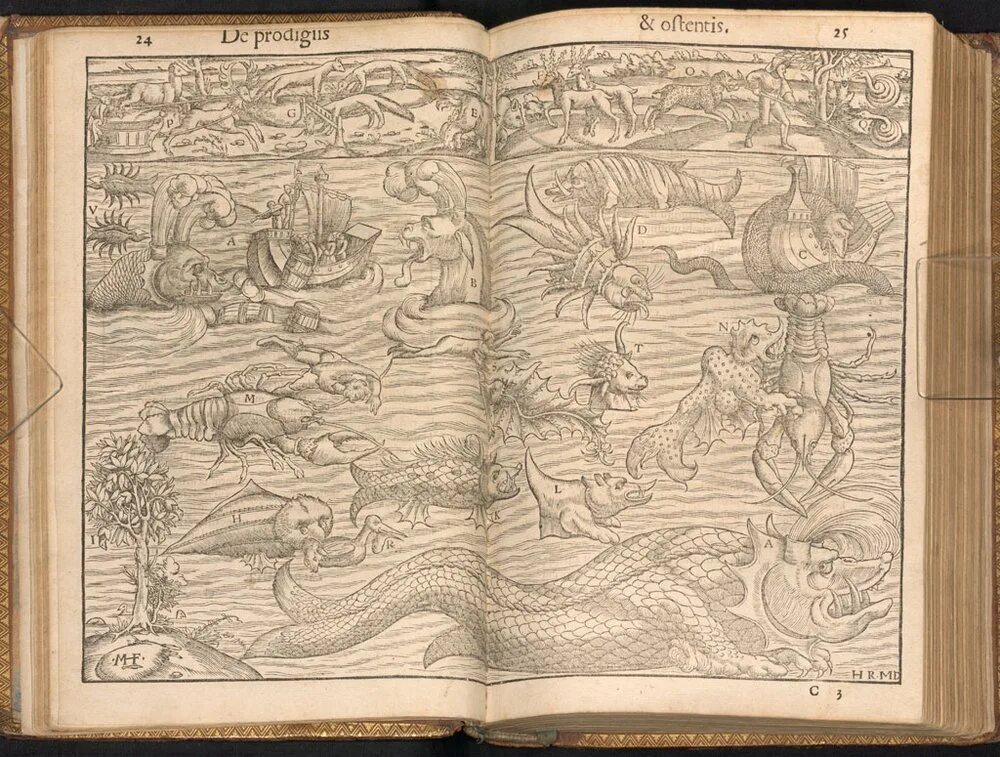 24 De prodigiis
& ostentis. 25
P
G
E
F
O
Q
V
A
B
D
C
M
T
N
H
I
R
K
L
A
MHF
HR·MD
C 3